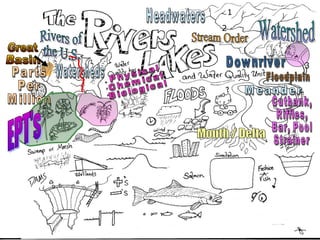 The
Rivers
Lakes
and Water Quality Unit
Headwaters
1
2
Stream Order
Watershed
Rivers of
the U.S.
Great
Basin
Parts
Per
Million
Watersheds
Water
Quality
Physical
Chemical
Biological
Downriver
Floodplain
Meander
FLOODS
Cutbank,
Riffles,
Bar, Pool
Strainer
EPT's
Mouth / Delta
Swamp or Marsh
Wetlands
DAMS
+'s
-'s
Simulation
Salmon
Fashion
a
Fish